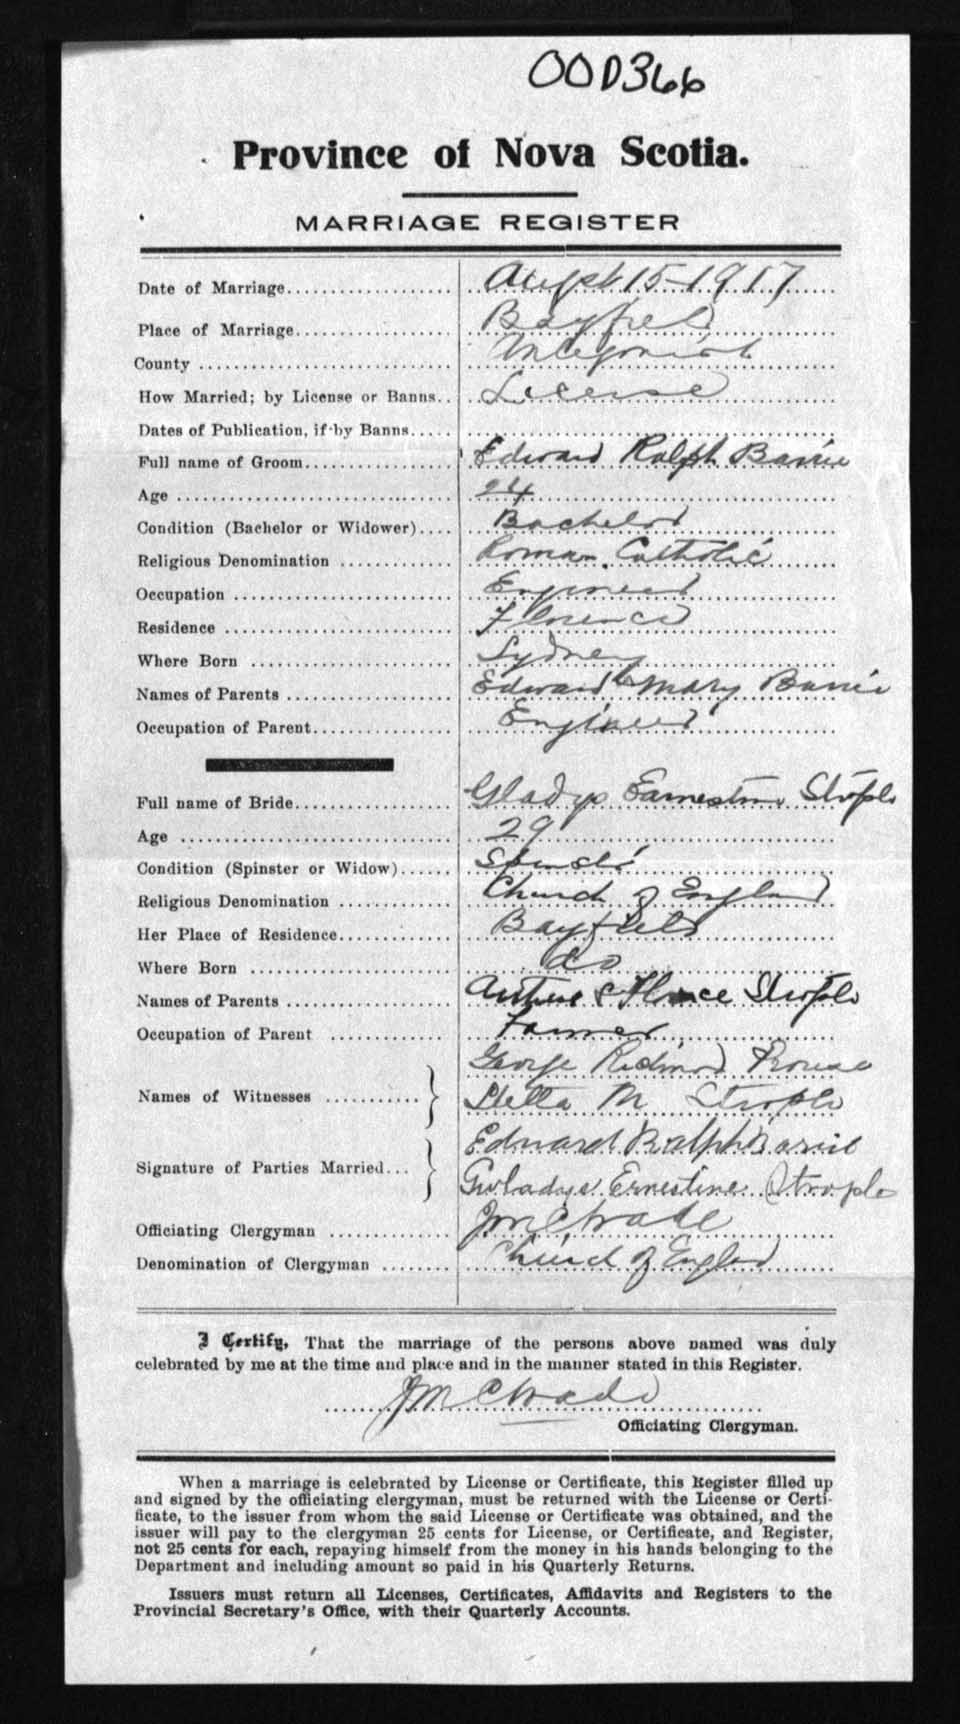 00D366
Province of Nova Scotia.
MARRIAGE REGISTER
Date of Marriage 15-1917
Place of Marriage Bayfield
County Antigonish
How Married; by License or Banns License
Dates of Publication, if by Banns
Full name of Groom Edward Ralph Barrie
Age 24
Condition (Bachelor or Widower) Bachelor
Religious Denomination Roman Catholic
Occupation Engineer
Residence Florence
Where Born Sydney
Names of Parents Edward & Mary Barrie
Occupation of Parent Engineer
Full name of Bride Gladys Earnestine Strople
Age 29
Condition (Spinster or Widow)
Religious Denomination Church of England
Her Place of Residence Bayfield
Where Born do
Names of Parents Arthur & Florence Strople
Occupation of Parent Farmer
George Redmond
Names of Witnesses
Stella M Strople
Edward Ralph Barrie
Signature of Parties Married
Gwladys Ernestine Strople
Officiating Clergyman
Denomination of Clergyman Church of England
I Certify, That the marriage of the persons above named was duly
celebrated by me at the time and place and in the manner stated in this Register.
Officiating Clergyman.
When a marriage is celebrated by License or Certificate, this Register filled up
and signed by the officiating clergyman, must be returned with the License or Certi-
ficate, to the issuer from whom the said License or Certificate was obtained, and the
issuer will pay to the clergyman 25 cents for License, or Certificate, and Register,
not 25 cents for each, repaying himself from the money in his hands belonging to the
Department and including amount so paid in his Quarterly Returns.
Issuers must return all Licenses, Certificates, Affidavits and Registers to the
Provincial Secretary's Office, with their Quarterly Accounts.